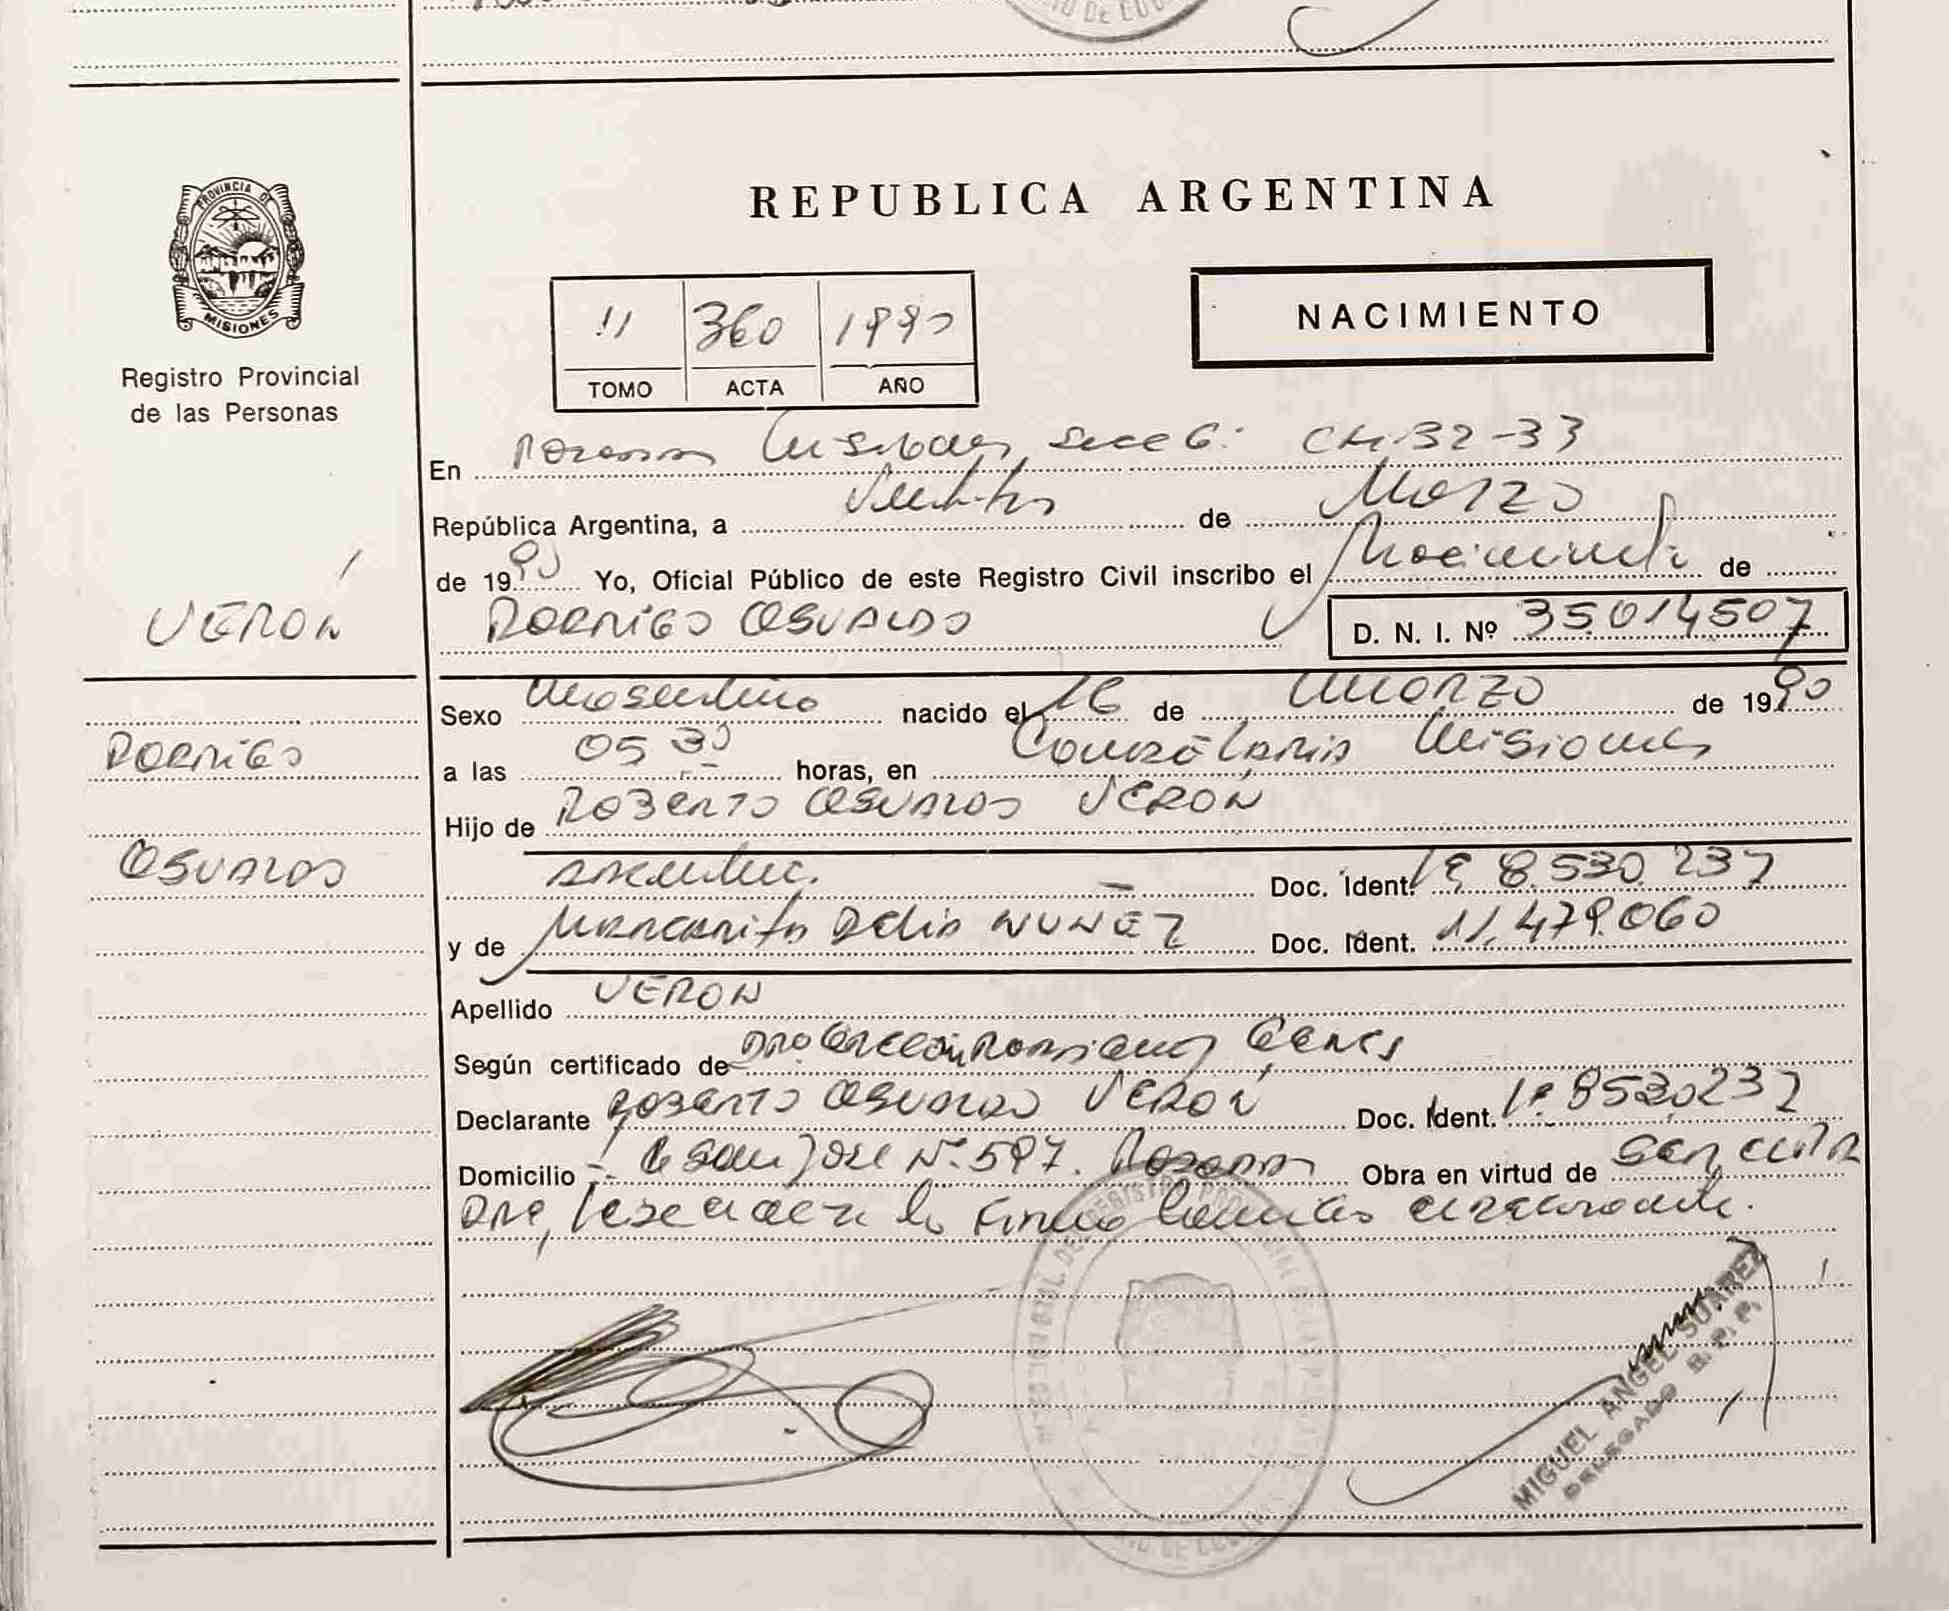 PROVINCIA DE
MISIONES
Registro Provincial
de las Personas
VERÓN
RODRIGO
OSVALDO
REPUBLICA ARGENTINA
II 360 1990
TOMO ACTA AÑO
NACIMIENTO
En Posadas Misiones, Secc 6: CH: 32-33
República Argentina, a de Marzo
de 1990 Yo, Oficial Público de este Registro Civil inscribo el Nacimiento de
RODRIGO OSVALDO D. N. I. Nº 35.014507
Sexo Masculino nacido el 16 de MARZO de 1990
a las 05 30 horas, en Misiones
Hijo de ROBERTO OSVALDO VERON
Argentino. — Doc. Ident. 8.530.237
y de Margarita Delia NUÑEZ Doc. Ident. 11.479.060
Apellido VERON
Según certificado de
Declarante ROBERTO OSVALDO VERÓN Doc. Ident. 8530237
Domicilio San José Nº 597. Posadas Obra en virtud de ser
la firma
MIGUEL ANGEL SUAREZ
DELEGADO R. P. P.